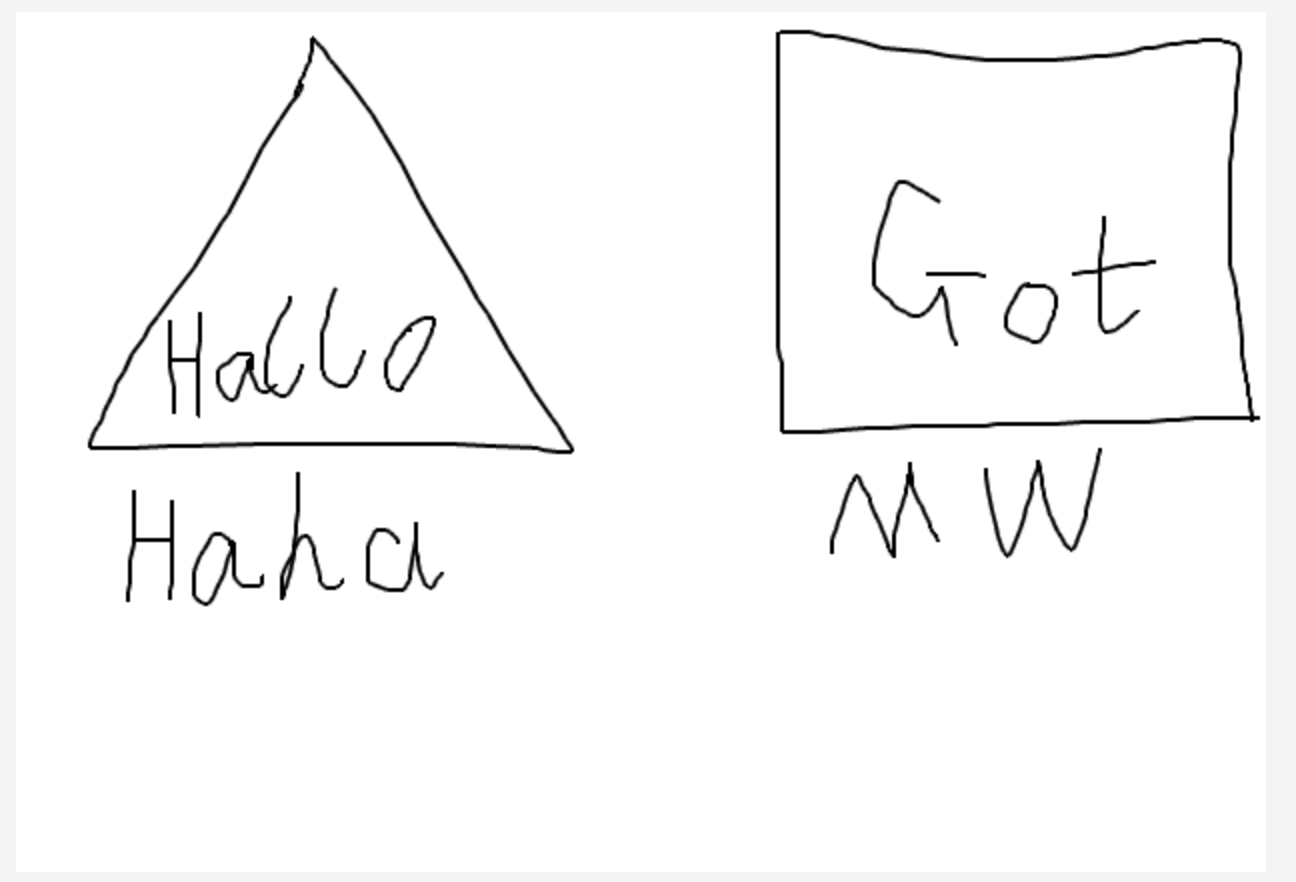 Hallo
Haha
Got
MW